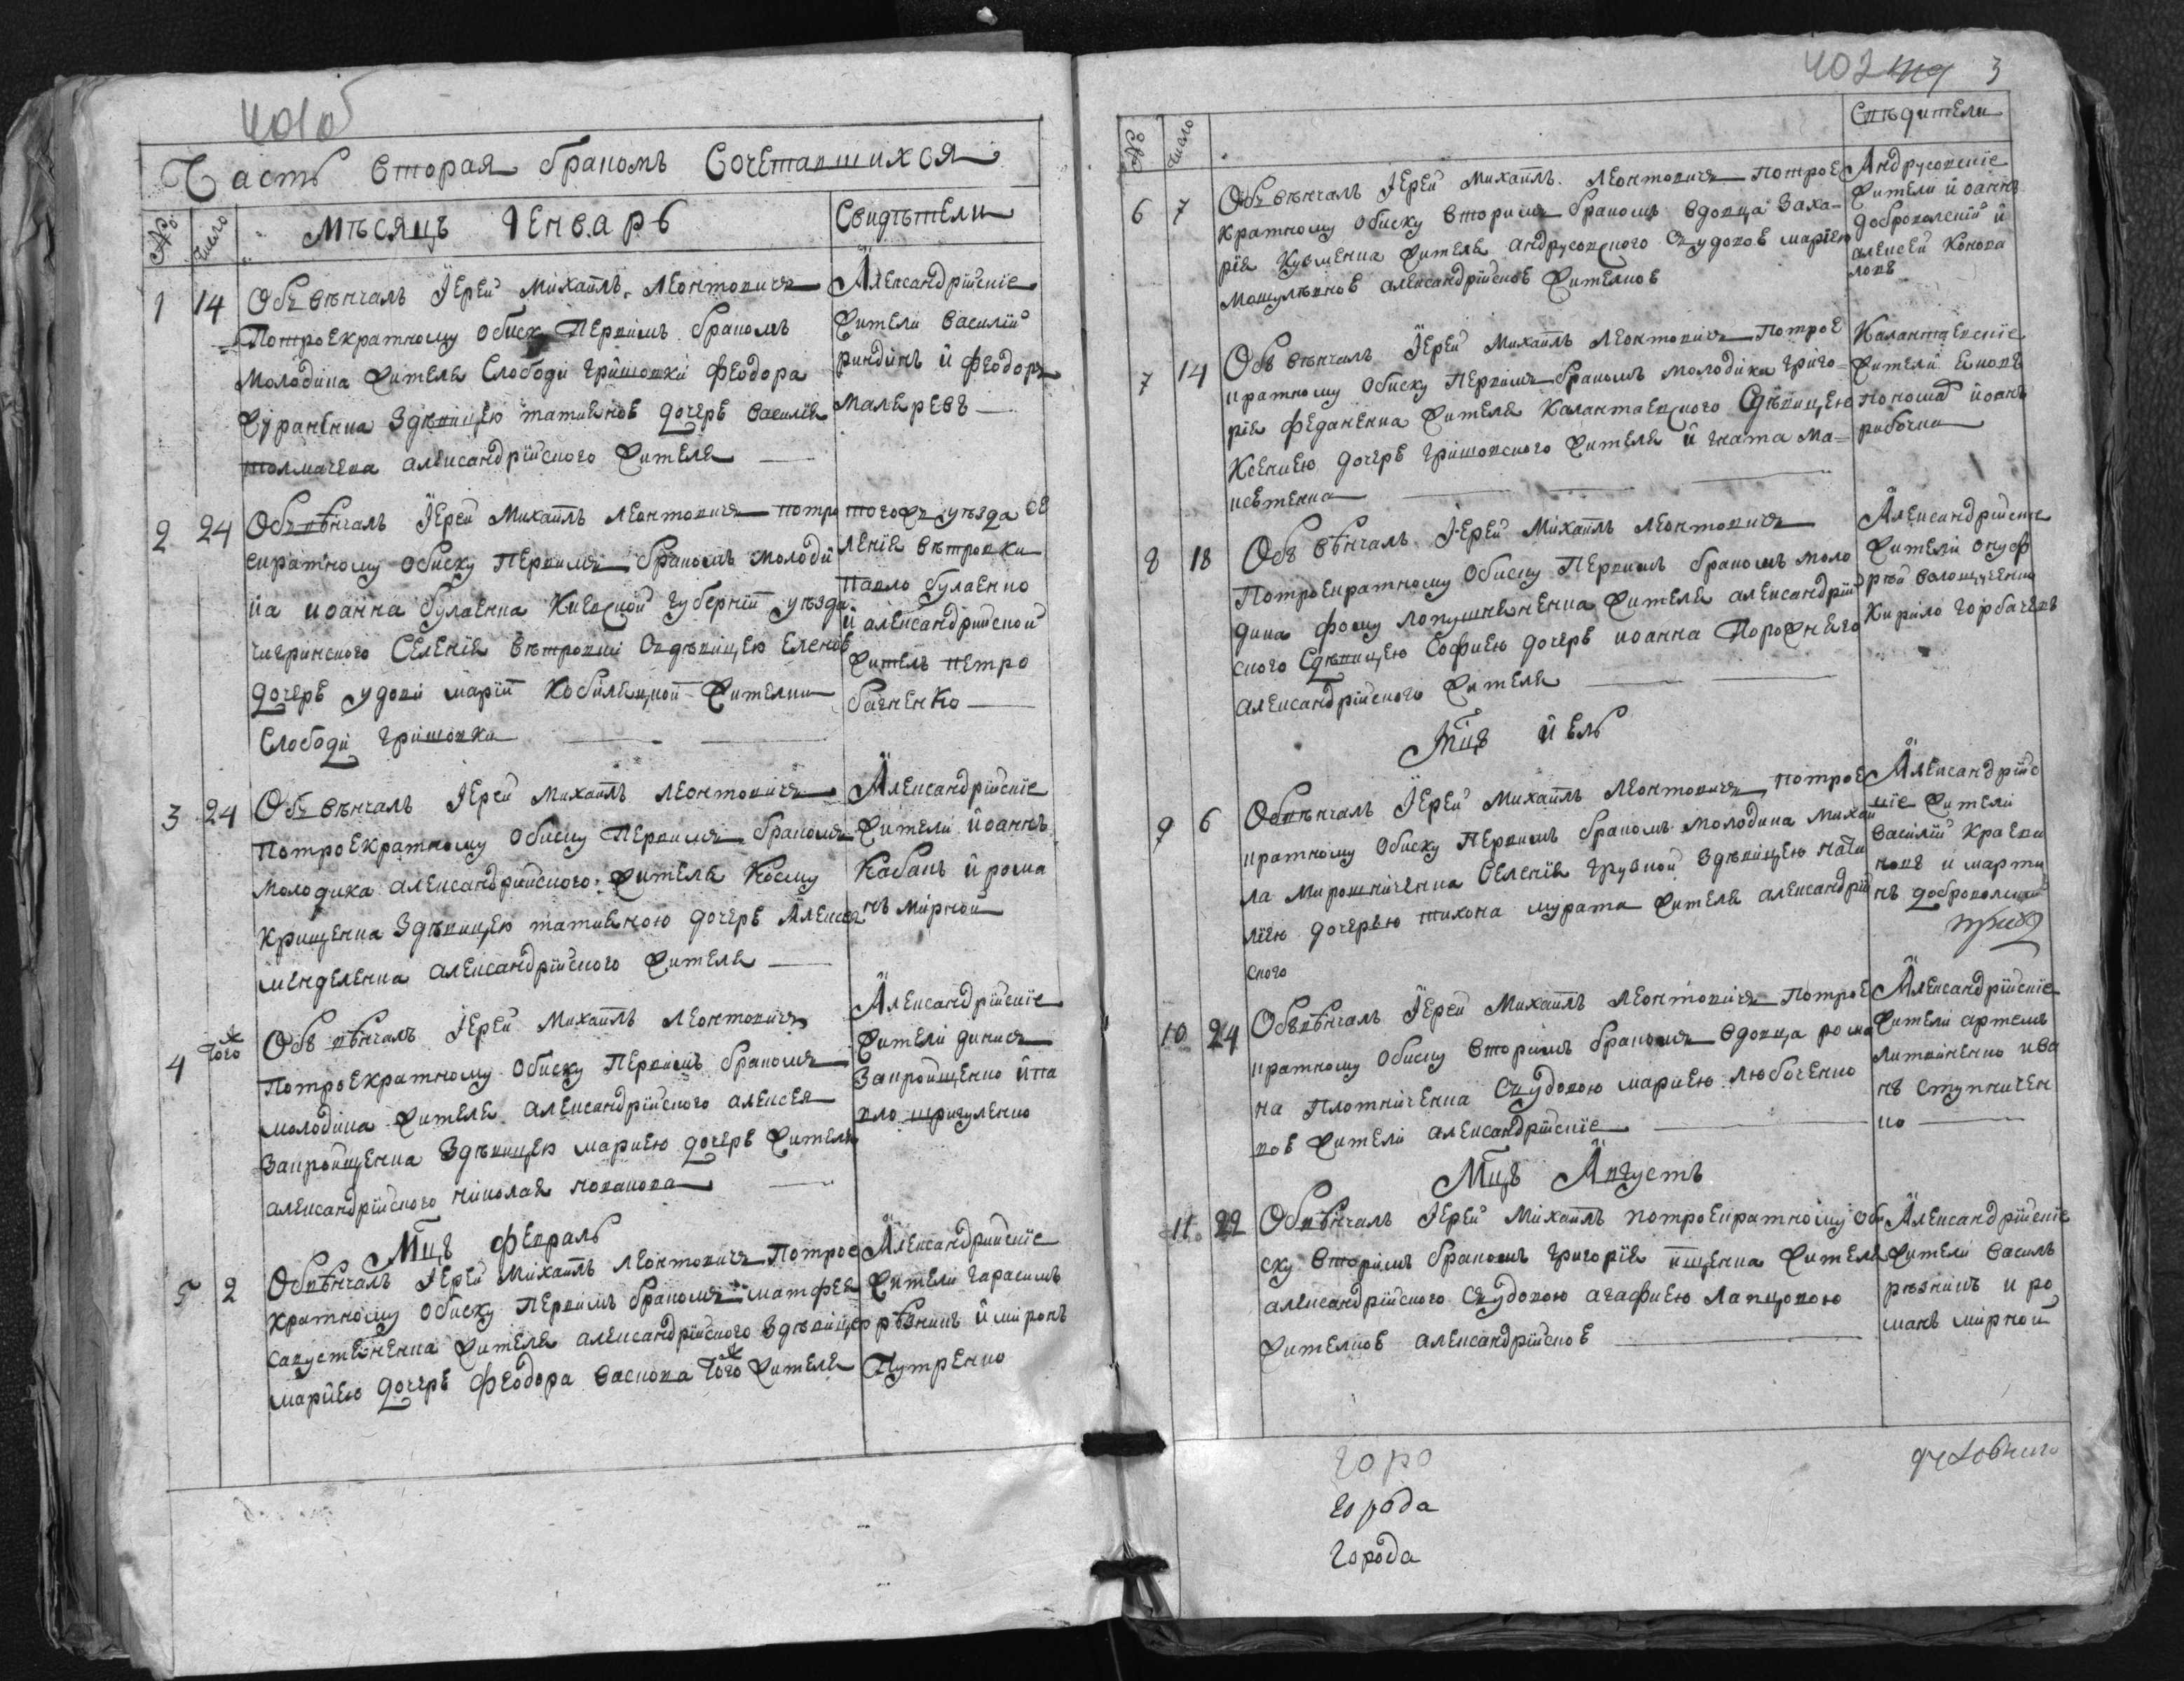 401об
Часть вторая браком Сочетавшихся
№ число Мѣсяцъ Iенварь Свидѣтели
1 14 Объ вѣнчалъ Iерей Михаилъ Леонтовичъ
Потроекратному обиску Первимъ бракомъ
молодика жителя Слободи Грѝшовки Феодора
Журавленка Здѣвицею татиеное дочерѣ василия
толмачева александрѝйского жителя
Александрѝйские
жители василий
риндинъ и Феодоръ
малеревъ
2 24 Объвѣнчалъ Iерей Михаилъ Леонтовичъ потро
екратному обиску Первимъ бракомъ молоди
ка иоанна булаенка Киевской губернии уѣзда
чигринского Селения вѣтровки Здѣвицею Еленое
дочерѣ удови марии Кобилецкой жителки
Слободи грѝшовки
тогожъ уѣзда се
ления вѣтровки
Павло булаенко
и александрѝйской
житель петро
баченко
3 24 Объ вѣнчалъ Iерей Михаилъ Леонтовичъ
Потроекратному обиску Первимъ бракомъ
молодика александрѝйского жителя Косму
Крищенка Здѣвицею татиеною дочерѣ Алексея
менделенка александрѝйского жителя
Александрѝйские
жители иоаннъ
Кабанъ и рома
нъ мирной
4 того ж Объ вѣнчалъ Iерей Михаилъ Леонтовичъ
Потроекратному обиску Первимъ бракомъ
молодика жителя александрѝйского алексея
Запройщенка Здѣвицею мариею дочерѣ жителя
александрѝйского николая новакова
Александрѝйские
жители динисъ
Запройщенко и па
вло шригуленко
Мцъ Февраль
5 2 Объвѣнчалъ Iерей Михаилъ Леонтовичъ Потрое
кратному обиску Первимъ бракомъ матфея
Сапустяненка жителя александрѝйского Здѣвицею
мариею дочерѣ Феодора васкова того ж жителя
Александрѝйские
жители гарасимъ
рѣзникъ и миронъ
Путренко
402 3
№ число Свѣдители
6 7 Объ вѣнчалъ Iерей Михаилъ Леонтовичъ потрое
кратному обиску вторимъ бракомъ вдовца Заха-
рия Кузменка жителя андрусовского Съ удовое мариею
мошулѣвное александрѝйское жителкое
Андрусовские
жители иоаннъ
доброволский и
алексей Конова
ловъ
7 14 Объ вѣнчалъ Iерей Михаилъ Леонтовичъ Потрое
кратному обиску Первимъ бракомъ молодика григо-
рия Феданенка жителя Калантаевского Сдѣвицею
Ксениею дочерѣ грѝшовского жителя игната ма-
ксѣтенка
Калантаевские
жители Емовъ
Поношат иоанъ
рибочка
8 18 Объ вѣнчалъ Iерей Михаилъ Леонтовичъ
Потроекратному обиску Первимъ бракомъ моло
дика Фому лопушняненка жителя александрѝй
ского Сдѣвицею Софиею дочерѣ иоанна Порожнего
александрѝйского жителя
Александрѝйские
жители онуф
рѣй волощученко
Кирило Горбачевъ
Мцъ иель
9 6 Обвѣнчалъ Iерей Михаилъ Леонтовичъ потрое
кратному обиску Первимъ бракомъ молодика михаи
ла мирошниченка Селения грузкой Здѣвицею ната
лиею дочерѣю тихона мурата жителя александрѝй
ского
Александрѝйс
кие жители
василий Краевѝ
ковъ и марти
нъ доброволский
10 24 Объвѣнчалъ Iерей Михаилъ Леонтовичъ потрое
кратному обиску вторимъ бракомъ вдовца рома
на Плотниченка Съудовою мариею любоченко
вое жители александрѝйские
Александрѝйские
жители артемъ
литвиненко ива
нъ ступничен
ко
Мцъ Августъ
11 22 Обвѣнчалъ Iерей Михаилъ потроекратному оби
ску вторимъ бракомъ григория ищенка жителя
александрѝйского Съудовою агафиею лапцовою
жителкое александрѝйское
Александрѝйские
жители василь
рѣзникъ и ро
манъ мирной
горо
города
города
духовнаго